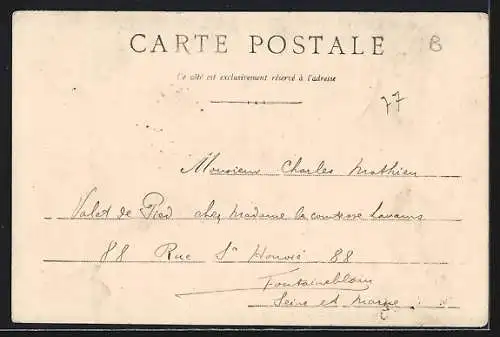 CARTE POSTALE
B
Ce côté est exclusivement réservé à l'adresse
77
Monsieur Charles Mathieu
Valet de Pied chez Madame la comtesse
88 Rue St Honoré 88
Fontainebleau
Seine et Marne